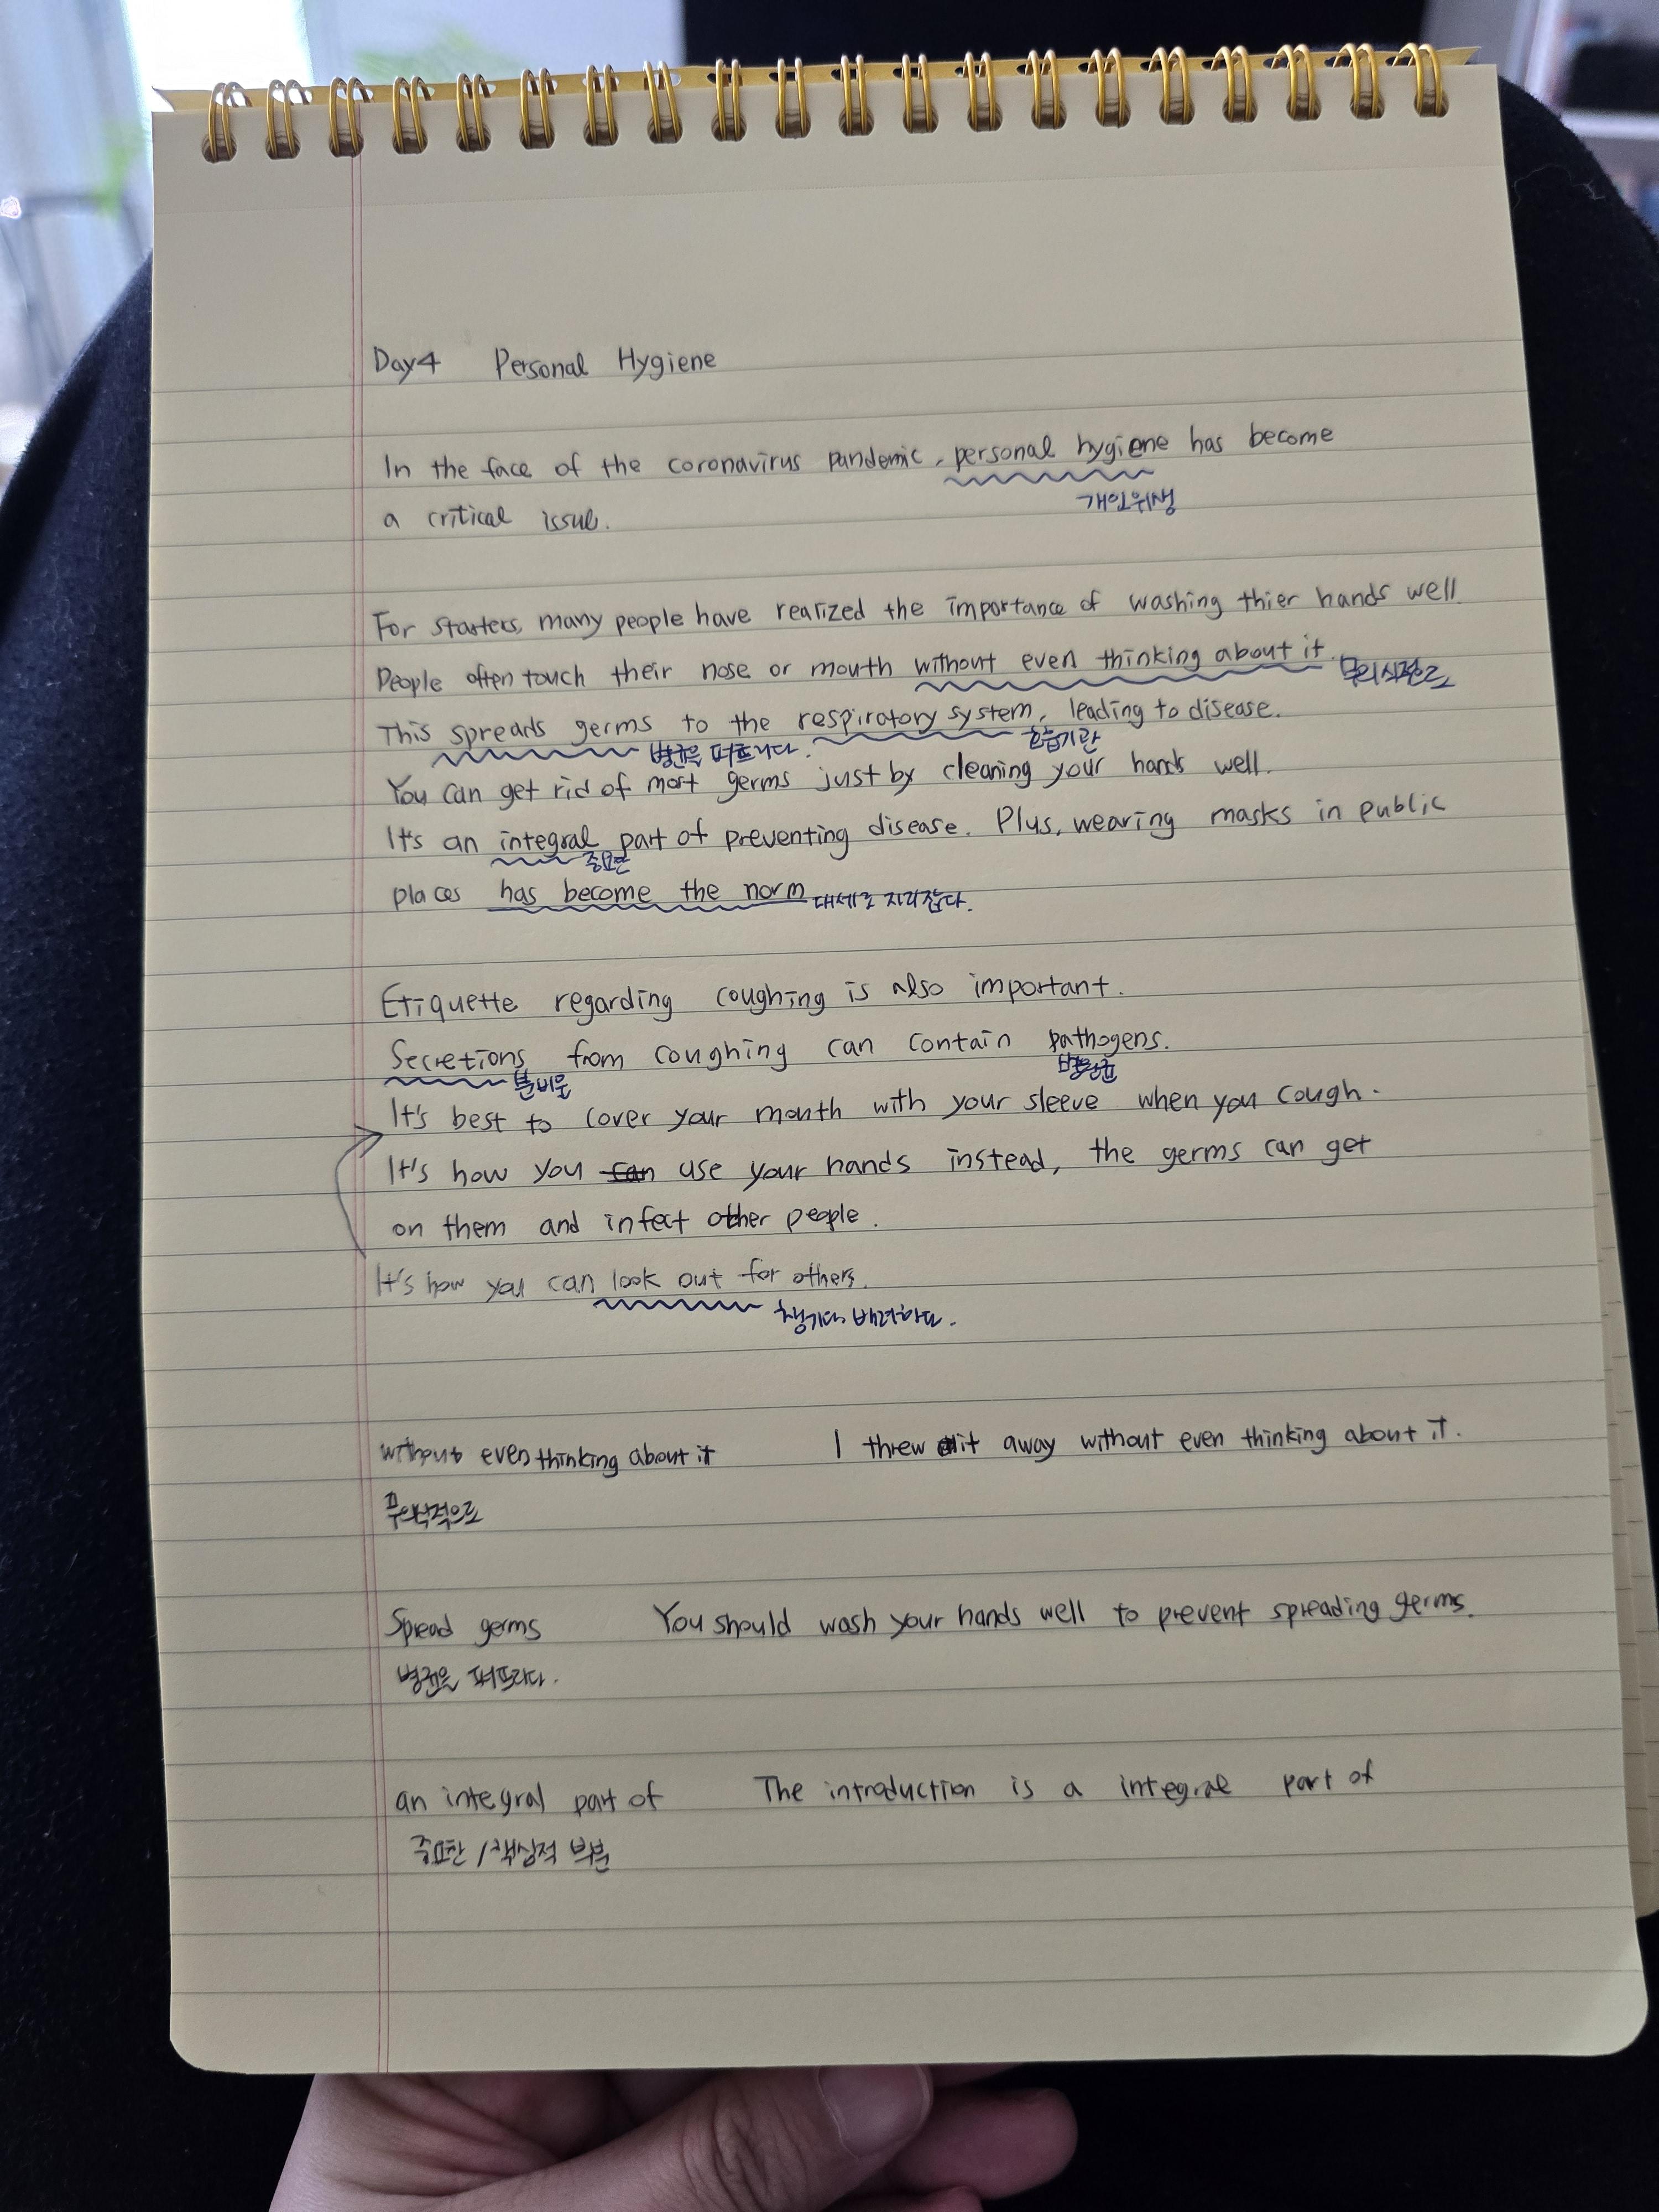 Day4 Personal Hygiene
In the face of the coronavirus pandemic, personal hygiene has become
개인위생
a critical issue.
For starters, many people have realized the importance of washing thier hands well
People often touch their nose or mouth without even thinking about it.
무의식적으로
This spreads germs to the respiratory system, leading to disease.
병균을 퍼프리다. 호흡기관
You can get rid of most germs just by cleaning your hands well.
It's an integral part of preventing disease. Plus, wearing masks in public
중요한
places has become the norm
대세로 자리잡다.
Etiquette regarding coughing is also important.
Secretions from coughing can contain pathogens.
분비물 병원균
It's best to cover your mouth with your sleeve when you cough.
It's how you can use your hands instead, the germs can get
on them and infect other people.
It's how you can look out for others.
챙기다 배려하다.
without even thinking about it I threw it away without even thinking about it.
무의식적으로
Spread germs You should wash your hands well to prevent spreading germs.
병균을 퍼프리다.
an integral part of The introduction is a integral part of
중요한 / 핵심적 부분